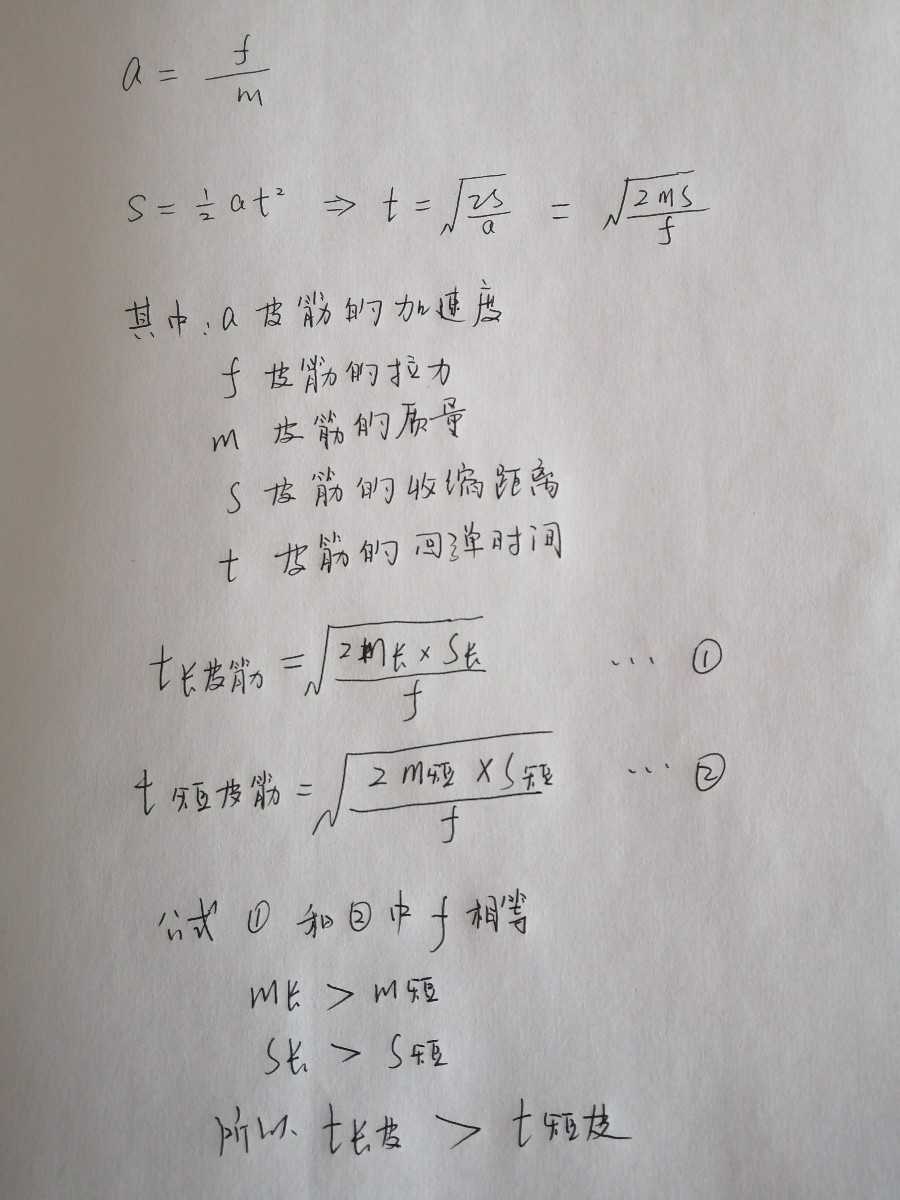 a = f/m
S = ½ at² ⇒ t = √(2S/a) = √(2mS/f)
其中: a 皮筋的加速度
f 皮筋的拉力
m 皮筋的质量
S 皮筋的收缩距离
t 皮筋的回弹时间
t长皮筋 = √(2m长 × S长/f) … ①
t短皮筋 = √(2m短 × S短/f) … ②
公式 ① 和 ② 中 f 相等
m长 > m短
S长 > S短
所以、t长皮 > t短皮